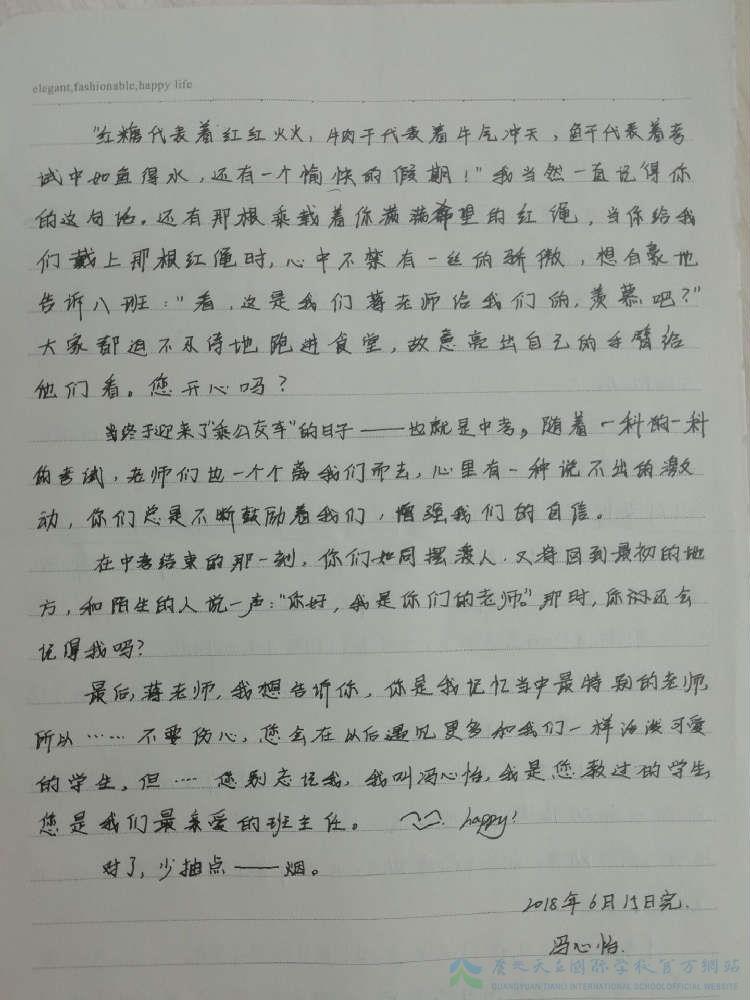 elegant,fashionable,happy life
"红糖代表着红红火火，牛肉干代表着牛气冲天，鱼干代表着考
试中如鱼得水，还有一个愉快的假期！"我当然一直记得你
的这句话。还有那根乘载着你满满希望的红绳，当你给我
们戴上那根红绳时，心中不禁有一丝的骄傲，想自豪地
告诉八班："看，这是我们蒋老师给我们的，羡慕吧？"
大家都迫不及待地跑进食堂，故意亮出自己的手臂给
他们看。您开心吗？
当终于迎来了"乘公交车"的日子——也就是中考。随着一科的一科
的考试，老师们也一个个离我们而去，心里有一种说不出的激
动，你们总是不断鼓励着我们，增强我们的自信。
在中考结束的那一刻，你们如同摆渡人，又将回到最初的地
方，和陌生的人说一声："你好，我是你们的老师。"那时，你们还会
记得我吗？
最后，蒋老师，我想告诉你，你是我记忆当中最特别的老师，
所以……不要伤心，您会在以后遇见更多和我们一样活泼可爱
的学生。但……您别忘记我，我叫冯心怡，我是您教过的学生，
您是我们最亲爱的班主任。 happy！
对了，少抽点——烟。
2018年6月15日完.
冯心怡.
广元天立国际学校官方网站
GUANGYUAN TIANLI INTERNATIONAL SCHOOL OFFICIAL WEBSITE